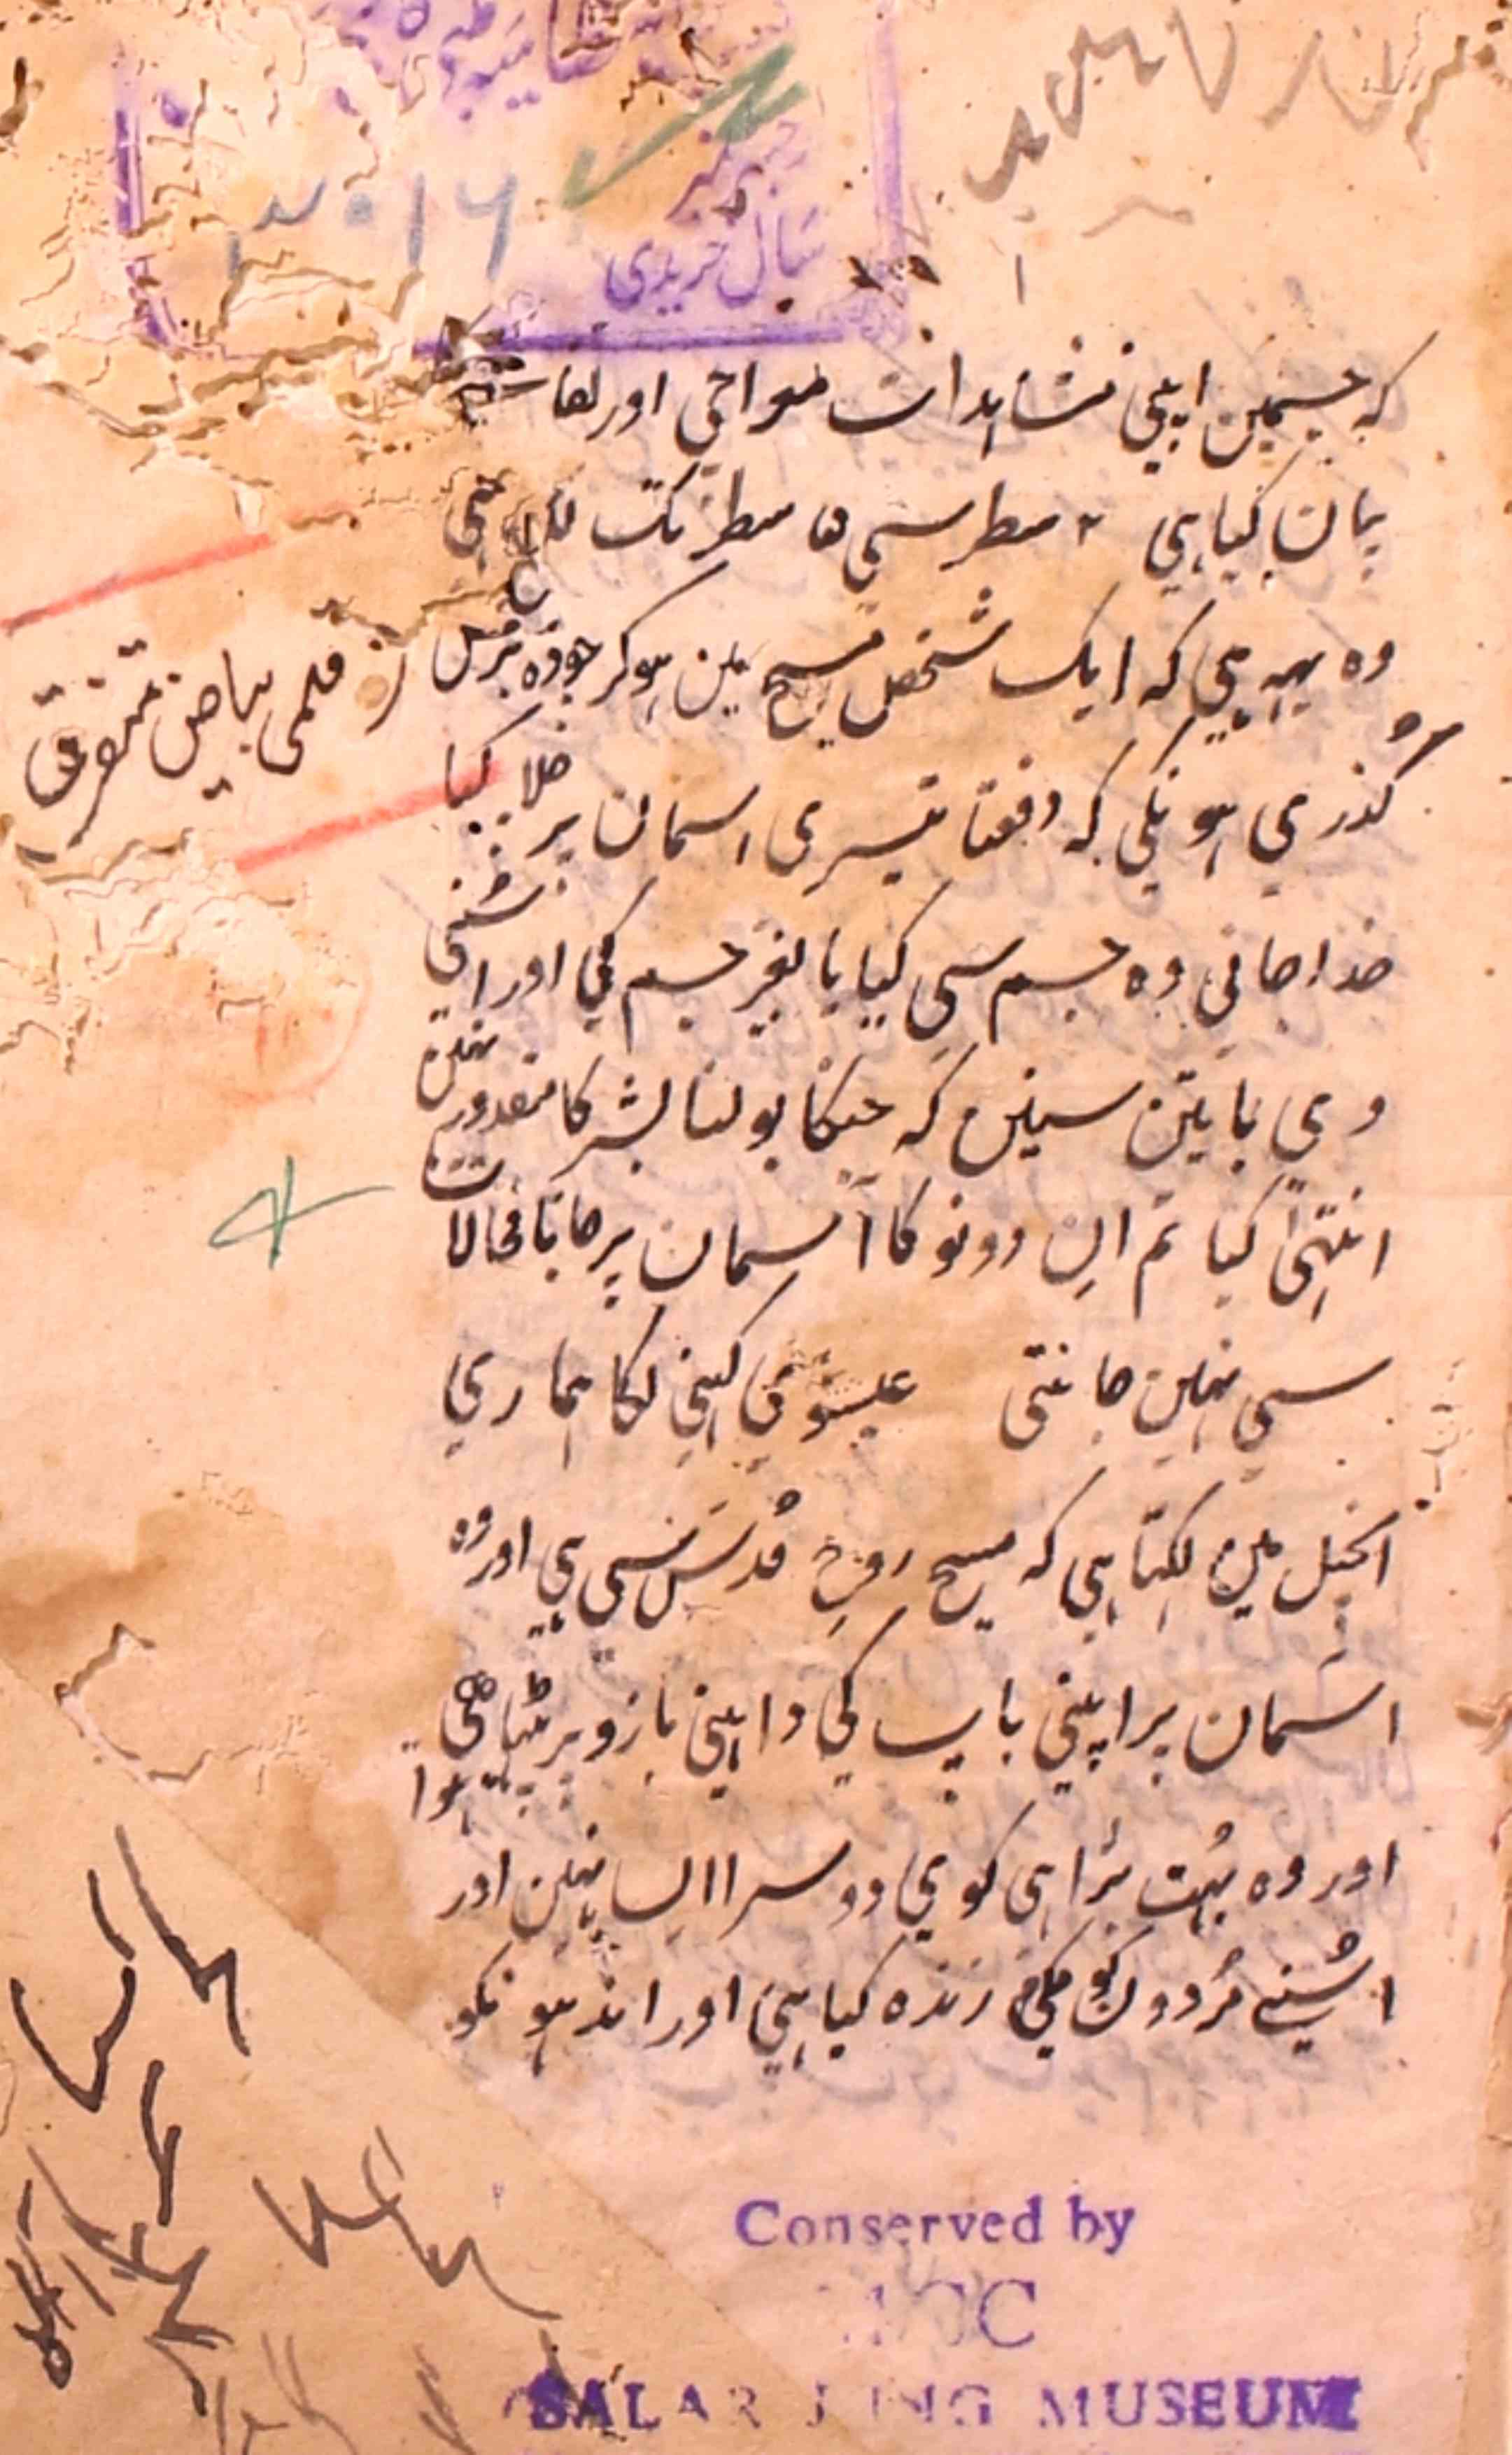 ۳۰۱۶
سال خریدی
کہ جسمین اپنی مشاہدات معراجی اور لقاے
بیان کیا ہی ۲ سطر سی ۵ سطر تک
وہ یہہ ہی کہ ایک شخص مسیح مین ہوکر جودہ برس
گذری ہونگی کہ دفعتا تیسری اسمان پر چلا گیا
خدا جانی وہ جسم سی گیا یا بغیر جسم کی اور اسنی
وی باتین سنین کہ جنکا بولنا بشر کا مقدور نہین
انتہیٰ کیا تم ان دونو کا آسمان پر جانا محالات
سی نہین جانتی عیسوی کہنی لگا ہماری
انجیل مین لکہتا ہی کہ مسیح روح قدس سی ہی اور وہ
اسمان پر اپنی باپ کی داہنی بازو پر بیٹہا ہوا ہی
اور وہ بہت بڑا ہی کوی دوسرا ایسا نہین اور
اسنے مُردون کو زندہ کیا ہی اور اندہونکو
از قلمی بیاض متفرق
Conserved by
SALAR JUNG MUSEUM